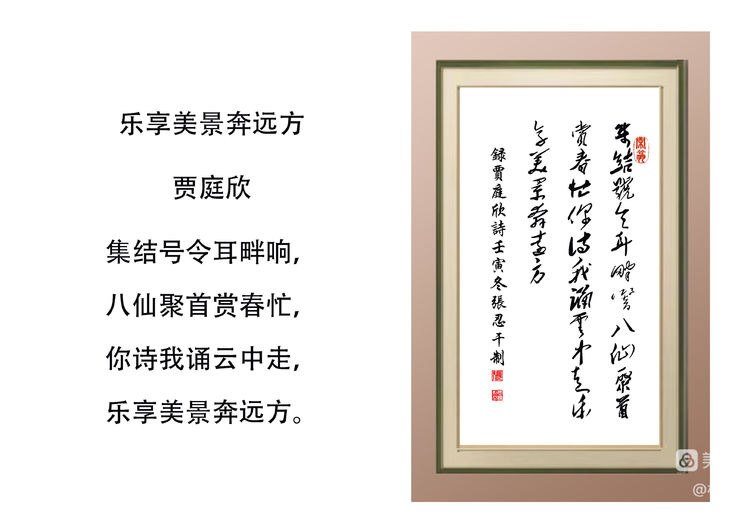 乐享美景奔远方
贾庭欣
集结号令耳畔响,
八仙聚首赏春忙,
你诗我诵云中走,
乐享美景奔远方。
集結號令耳畔響八仙聚首
赏春忙你诗我誦雲中走乐
享美景奔遠方
録賈庭欣詩壬寅冬張忍千制
美
@